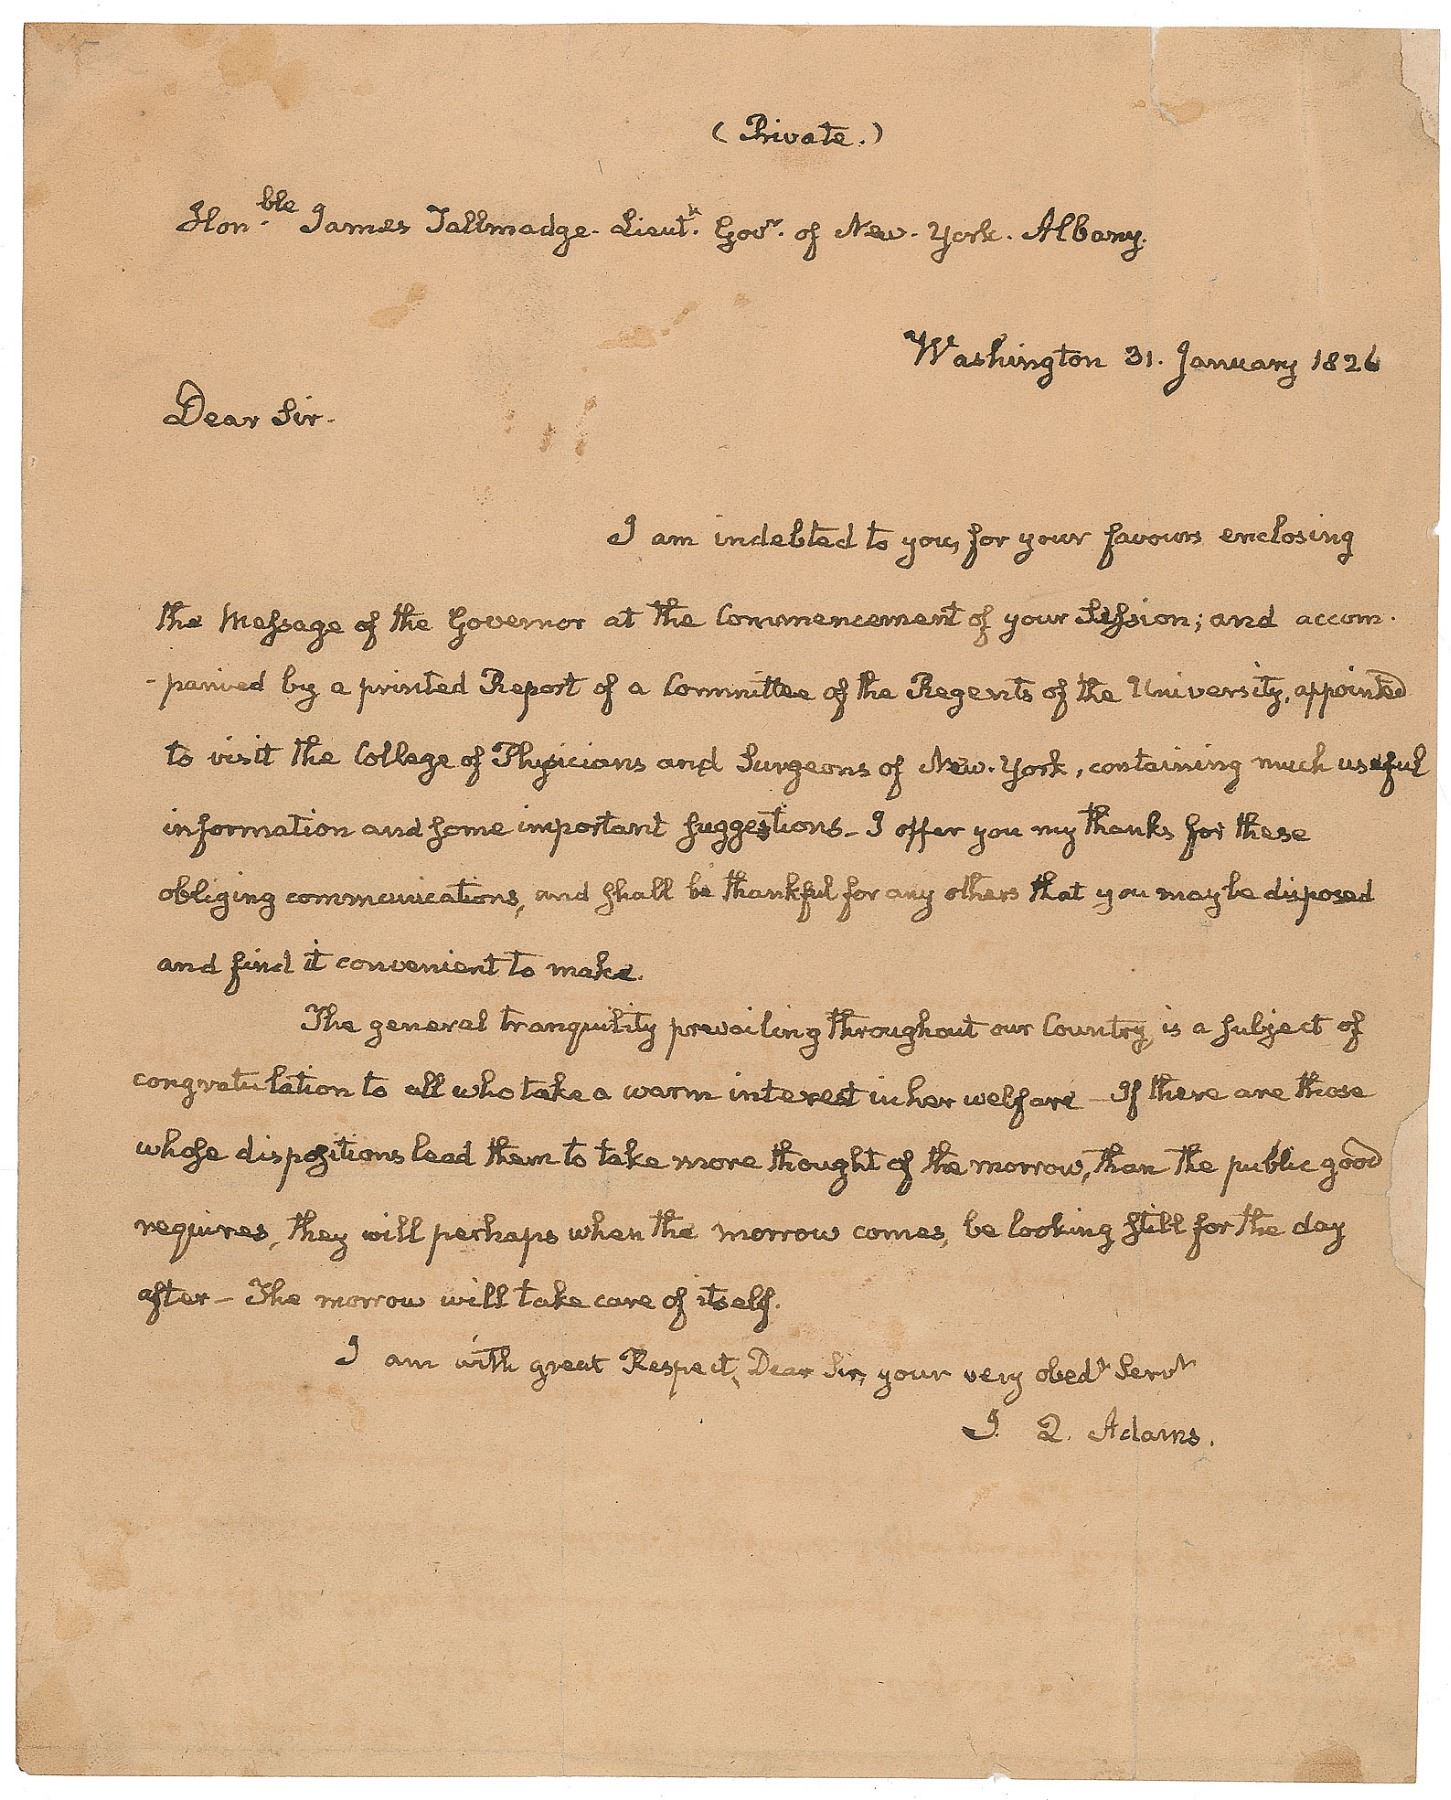 (Private.)
Hon.ble James Tallmadge. Lieut.t Govr. of New-York. Albany.
Washington 31. January 1826
Dear Sir.
I am indebted to you, for your favours enclosing
the Message of the Governor at the Commencement of your Session; and accom-
-panied by a printed Report of a Committee of the Regents of the University, appointed
to visit the College of Physicians and Surgeons of New-York, containing much useful
information and some important suggestions— I offer you my thanks for these
obliging communications, and shall be thankful for any others that you may be disposed
and find it convenient to make.
The general tranquility prevailing throughout our Country, is a subject of
congratulation to all who take a warm interest in her welfare— If there are those
whose dispositions lead them to take more thought of the morrow, than the public good
requires, they will perhaps when the morrow comes, be looking still for the day
after— The morrow will take care of itself.
I am with great Respect, Dear Sir, your very obedt Servt
J. Q. Adams.